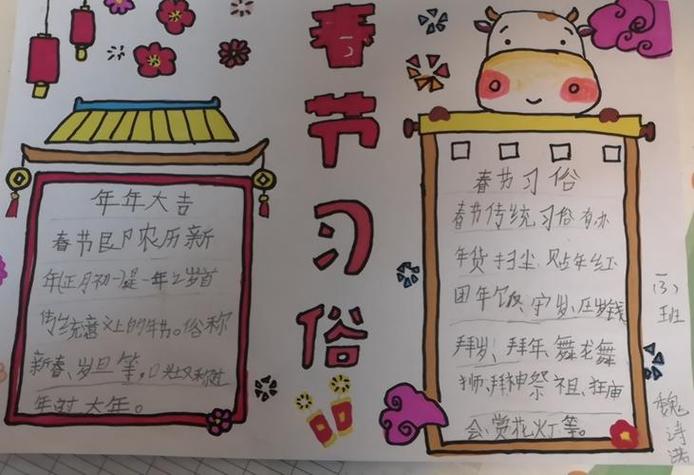 春节习俗
年年大吉
春节即农历新
年(正月初一)是一年之岁首
传统意义上的年节。俗称
新春、岁旦等,口头上又称过
年过大年。
春节习俗
春节传统习俗有办
年货扫尘、贴年红
团年饭、守岁、压岁钱
拜岁、拜年、舞龙舞
狮、拜神祭祖、逛庙
会、赏花灯等。
(3)
班
魏
诗